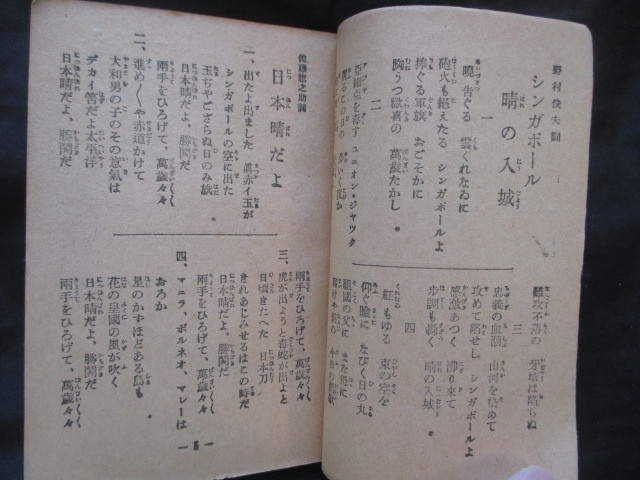 野村俊夫詞
シンガポール
晴の入城
一
曉告ぐる 雲くれなゐに
砲火も絕えたる シンガポールよ
捧ぐる軍旗 おごそかに
胸うつ歡喜の 萬歲たかし
二
ユニオン・ジヤツク
三
難攻不落の 牙城は陷ちぬ
忠義の血潮 山河を
攻めて陷せし シンガポールよ
感激あつく 濳り來て
步調も高く 晴の入城
四
紅もゆる 東の空を
仰ぐ瞼に なびく日の丸
祖國の父に また母に
日本晴だよ
一、出たよ出ました 眞赤イ玉が
シンガポールの空に出た
玉ぢやござらぬ日のみ旗
日本晴だよ、勝鬨だ
兩手をひろげて、萬歲々々
二、進め〱や赤道かけて
大和男の子のその意氣は
デカイ筈だよ太平洋
日本晴だよ、勝鬨だ
兩手をひろげて、萬歲々々
三、虎が出ようと毒蛇が出よと
日頃きたへた 日本刀
きれあじみせるはこの時だ
日本晴だよ、勝鬨だ
兩手をひろげて、萬歲々々
四、マニラ、ボルネオ、マレーは
おろか
星のかずほどある島も
花の皇國の風が吹く
日本晴だよ、勝鬨だ
兩手をひろげて、萬歲々々
— 5 —